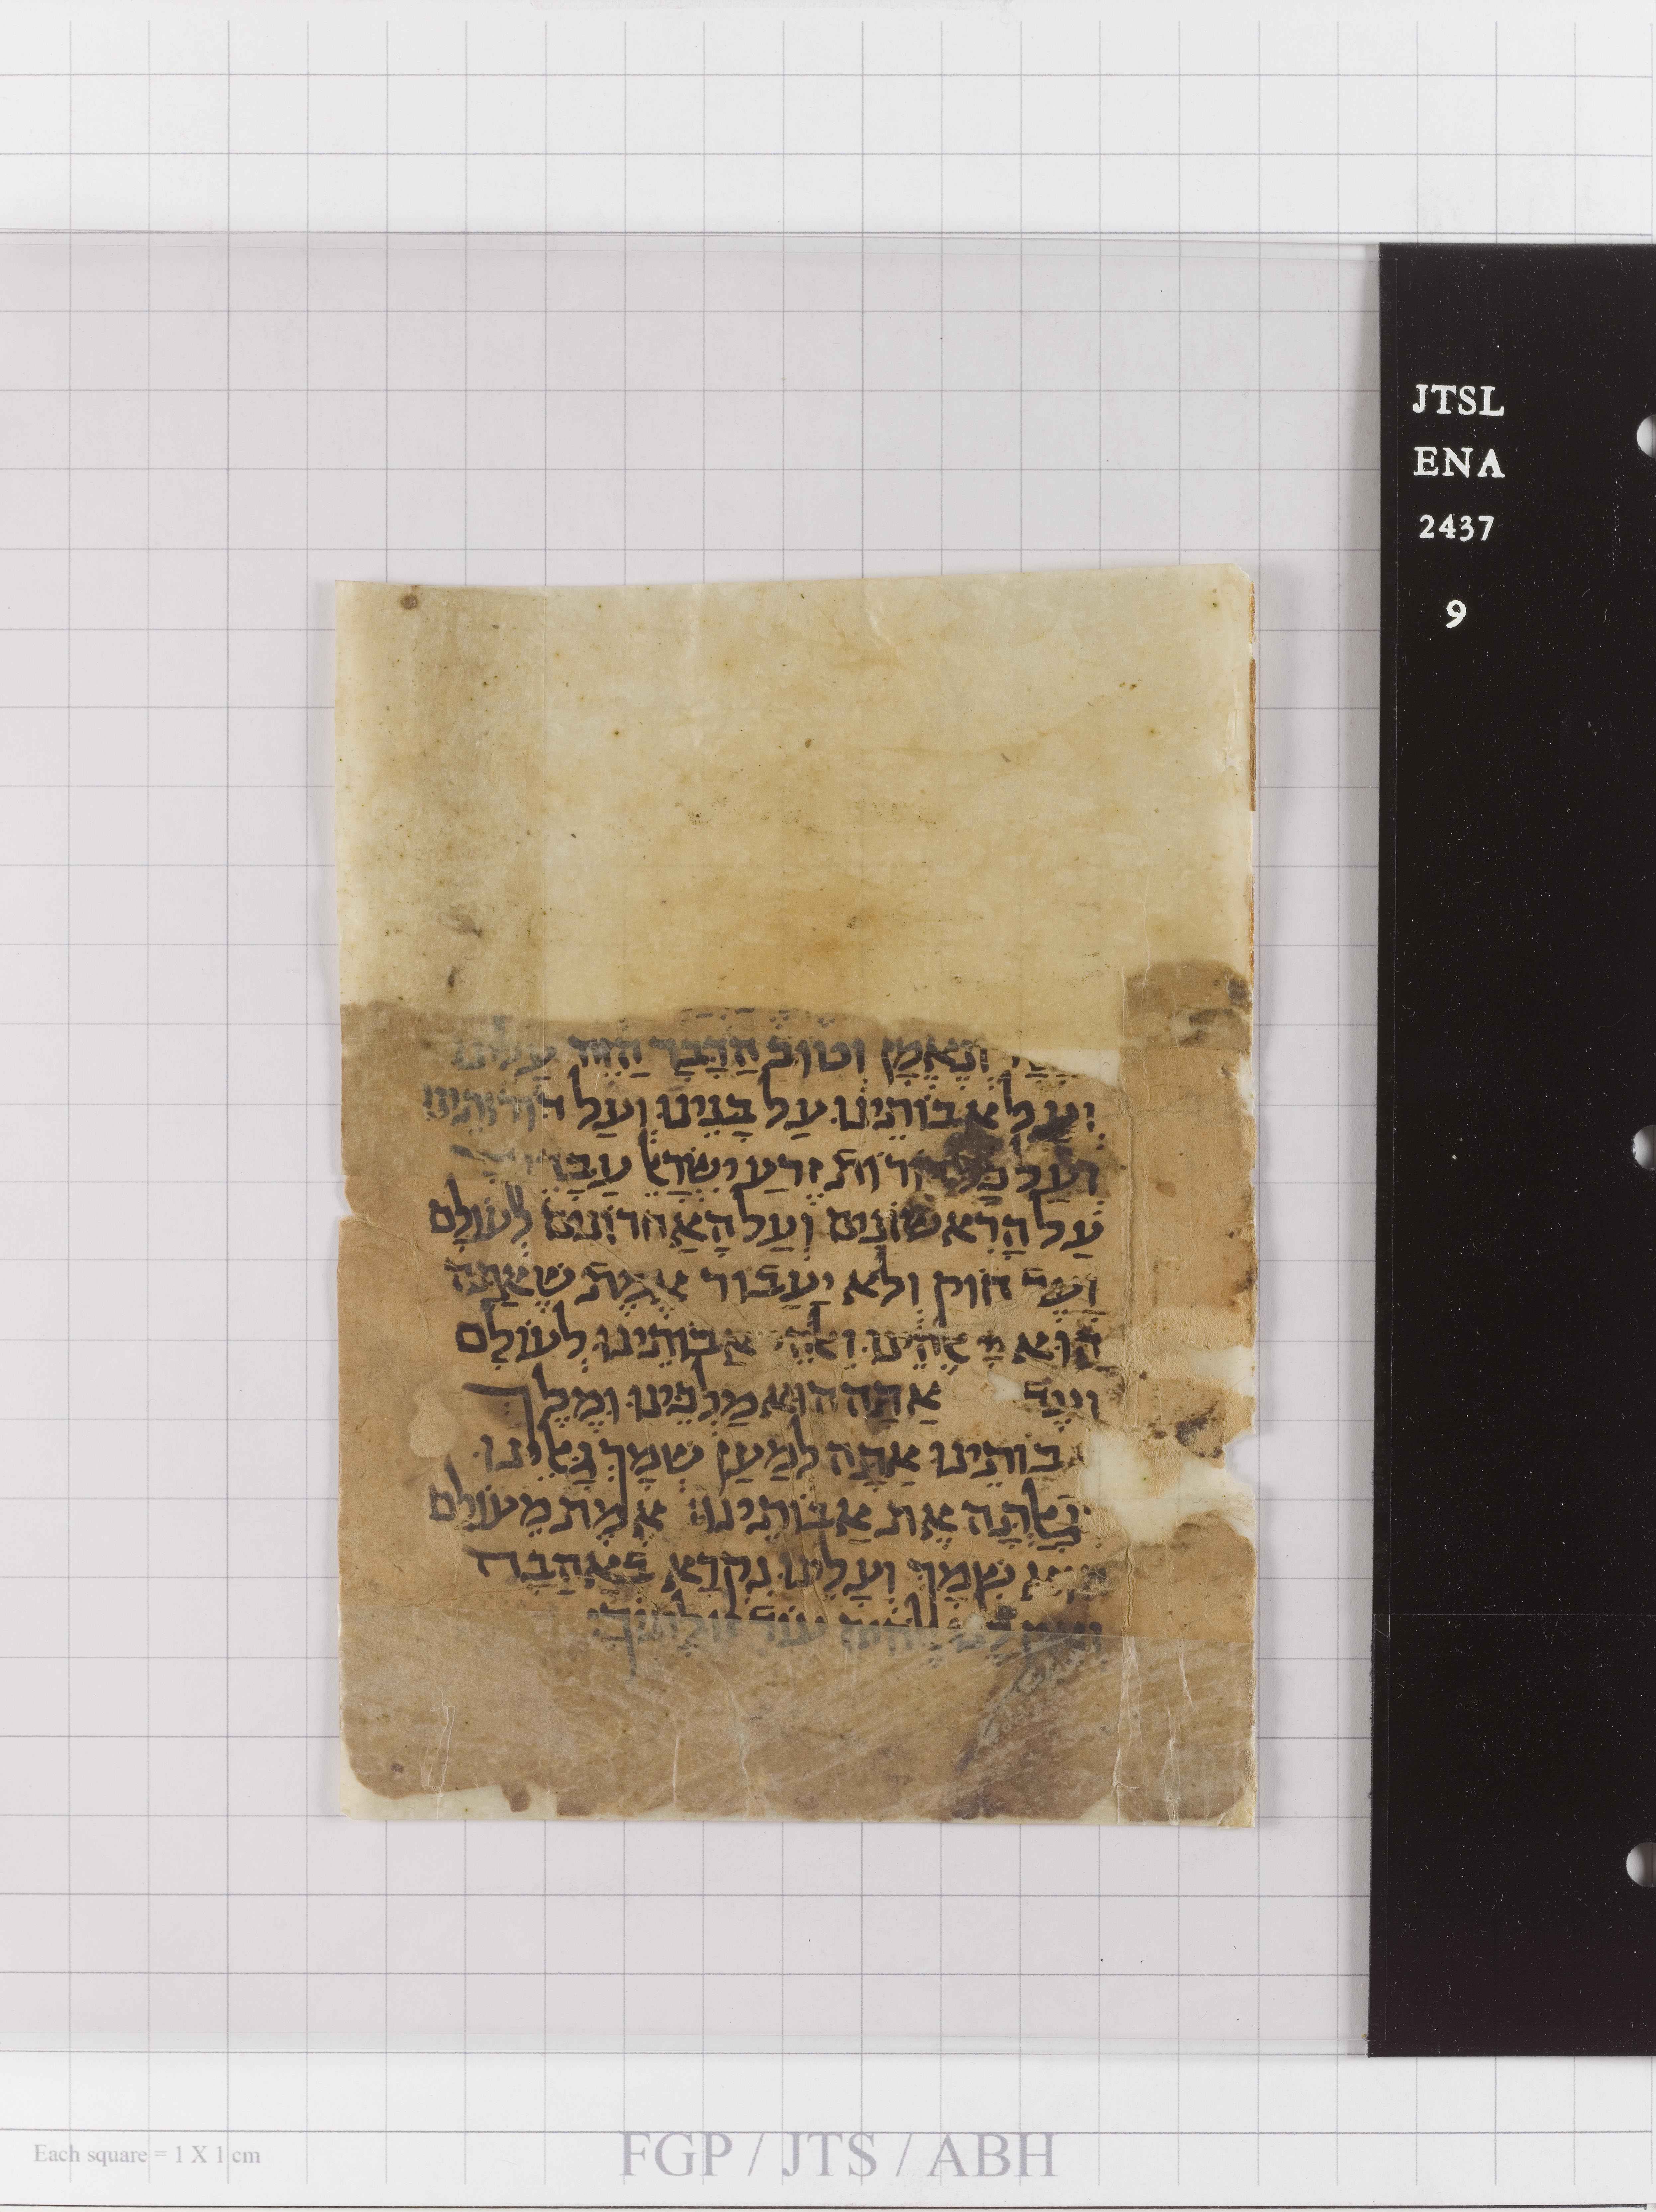 וְנֶאֱמָן וְטוֹב הַדָּבָר הַזֶּה עָלֵינוּ
וְעַל אֲבוֹתֵינוּ עַל בָּנֵינוּ וְעַל דּוֹרוֹתֵינוּ
וְעַל כָּל דּוֹרוֹת זֶרַע יִשְׂרָאֵל
עַל הָרִאשׁוֹנִים וְעַל הָאַחֲרוֹנִים לְעוֹלָם
וָעֶד חוֹק וְלֹא יַעֲבוֹר אֱמֶת שֶׁאַתָּה
הוּא אֲבוֹתֵינוּ לְעוֹלָם
וָעֶד אַתָּה הוּא מַלְכֵּינוּ וּמֶלֶךְ
אֲבוֹתֵינוּ אַתָּה לְמַעַן שִׁמְךָ גָּאֲלֵינוּ
גָּאַלְתָּה אֶת אֲבוֹתֵינוּ אֱמֶת מֵעוֹלָם
שִׁמְךָ וְעָלֵינוּ נִקְרָא בְּאַהֲבָה
עוֹד
JTSL
ENA
2437
9
Each square = 1 X 1 cm
FGP / JTS / ABH